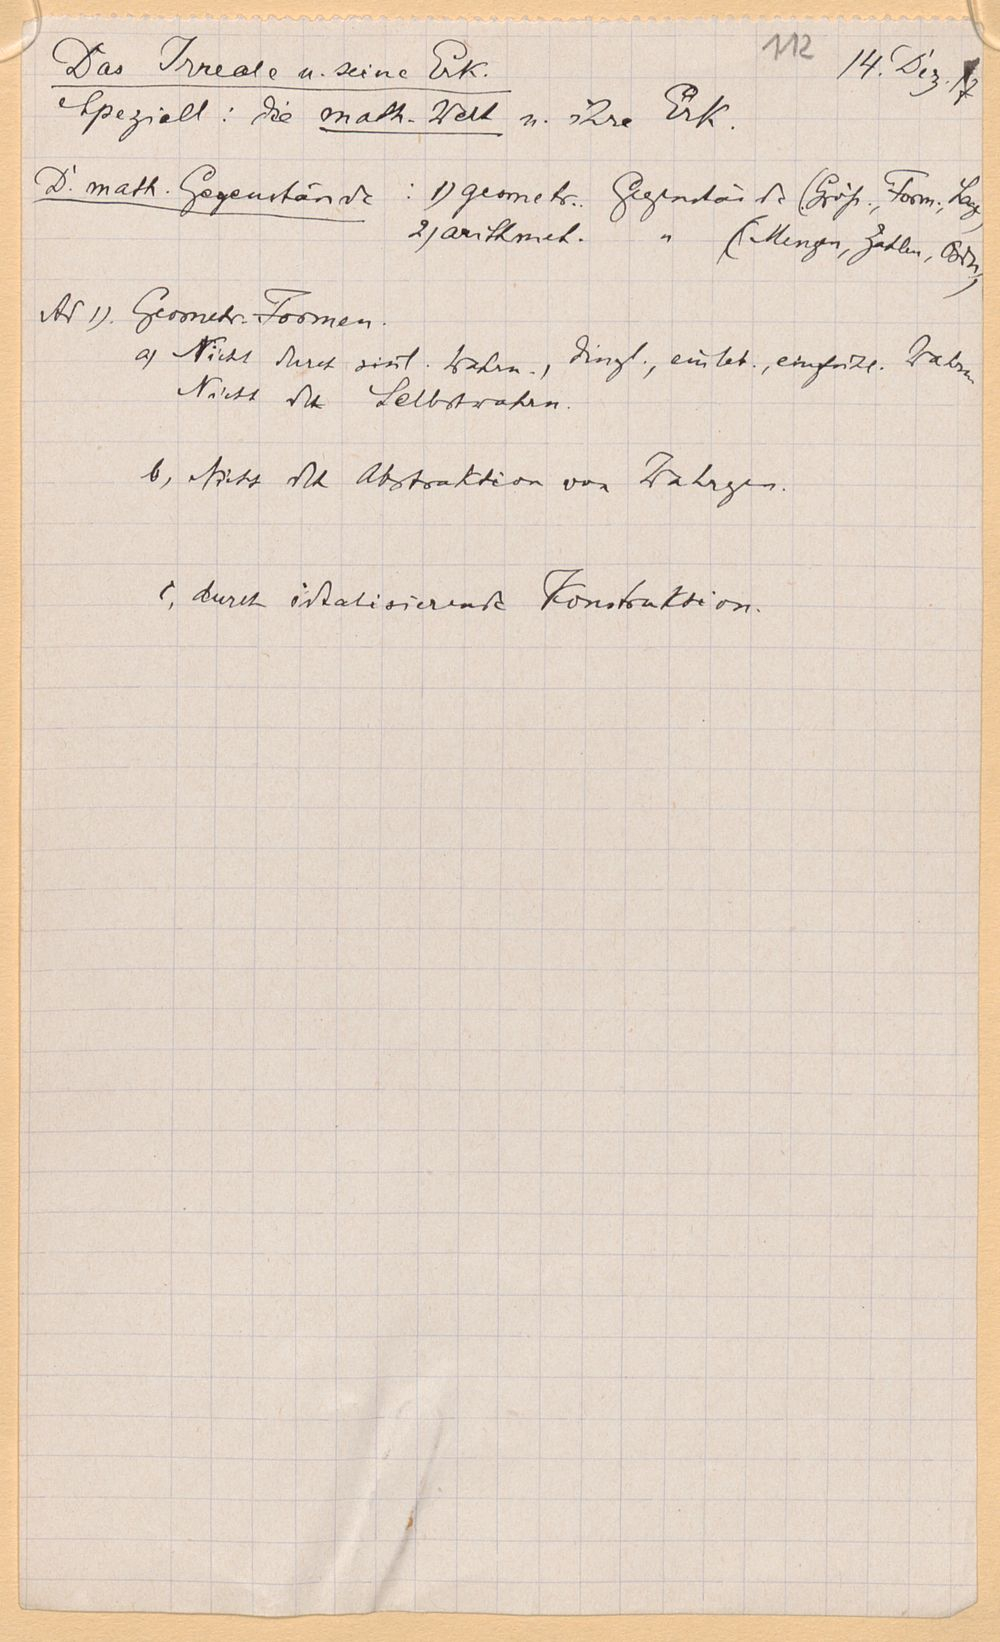 112
14. Dez. 17
Das Irreale u. seine Erk.
Speziell: die math. Welt u. ihre Erk.
D. math. Gegenstände : 1) geometr. Gegenstände (Größ., Form., Lage,
2) arithmet. " (Mengen, Zahlen, Ordn.,)
Ad 1). Geometr. Formen.
a) Nicht durch sinl. Wahrn., dingl., einzelne. Wahrn.
Nicht dch Selbstwahrn.
b, Nicht dch Abstraktion von Wahrgen.
c, durch idealisierende Konstruktion.